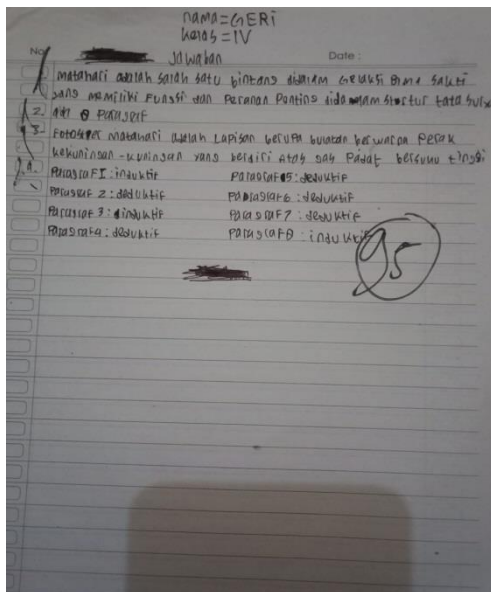 nama = GERI
kelas = IV
No
Jawaban
Date :
matahari adalah salah satu bintang didalam Gelaksi Bima sakti
yang memiliki Fungsi dan Peranan Penting didalam struktur tata surya
2. ada 8 Paragraf
3. Fotosfer matahari adalah Lapisan berupa bulatan berwarna Perak
kekuningan-kuningan yang terdiri atas gas Padat bersuhu tinggi
4. Paragraf I : induktif Paragraf 5 : deduktif
Paragraf 2 : deduktif Paragraf 6 : deduktif
Paragraf 3 : induktif Paragraf 7 : deduktif
Paragraf 4 : deduktif Paragraf 8 : induktif
95